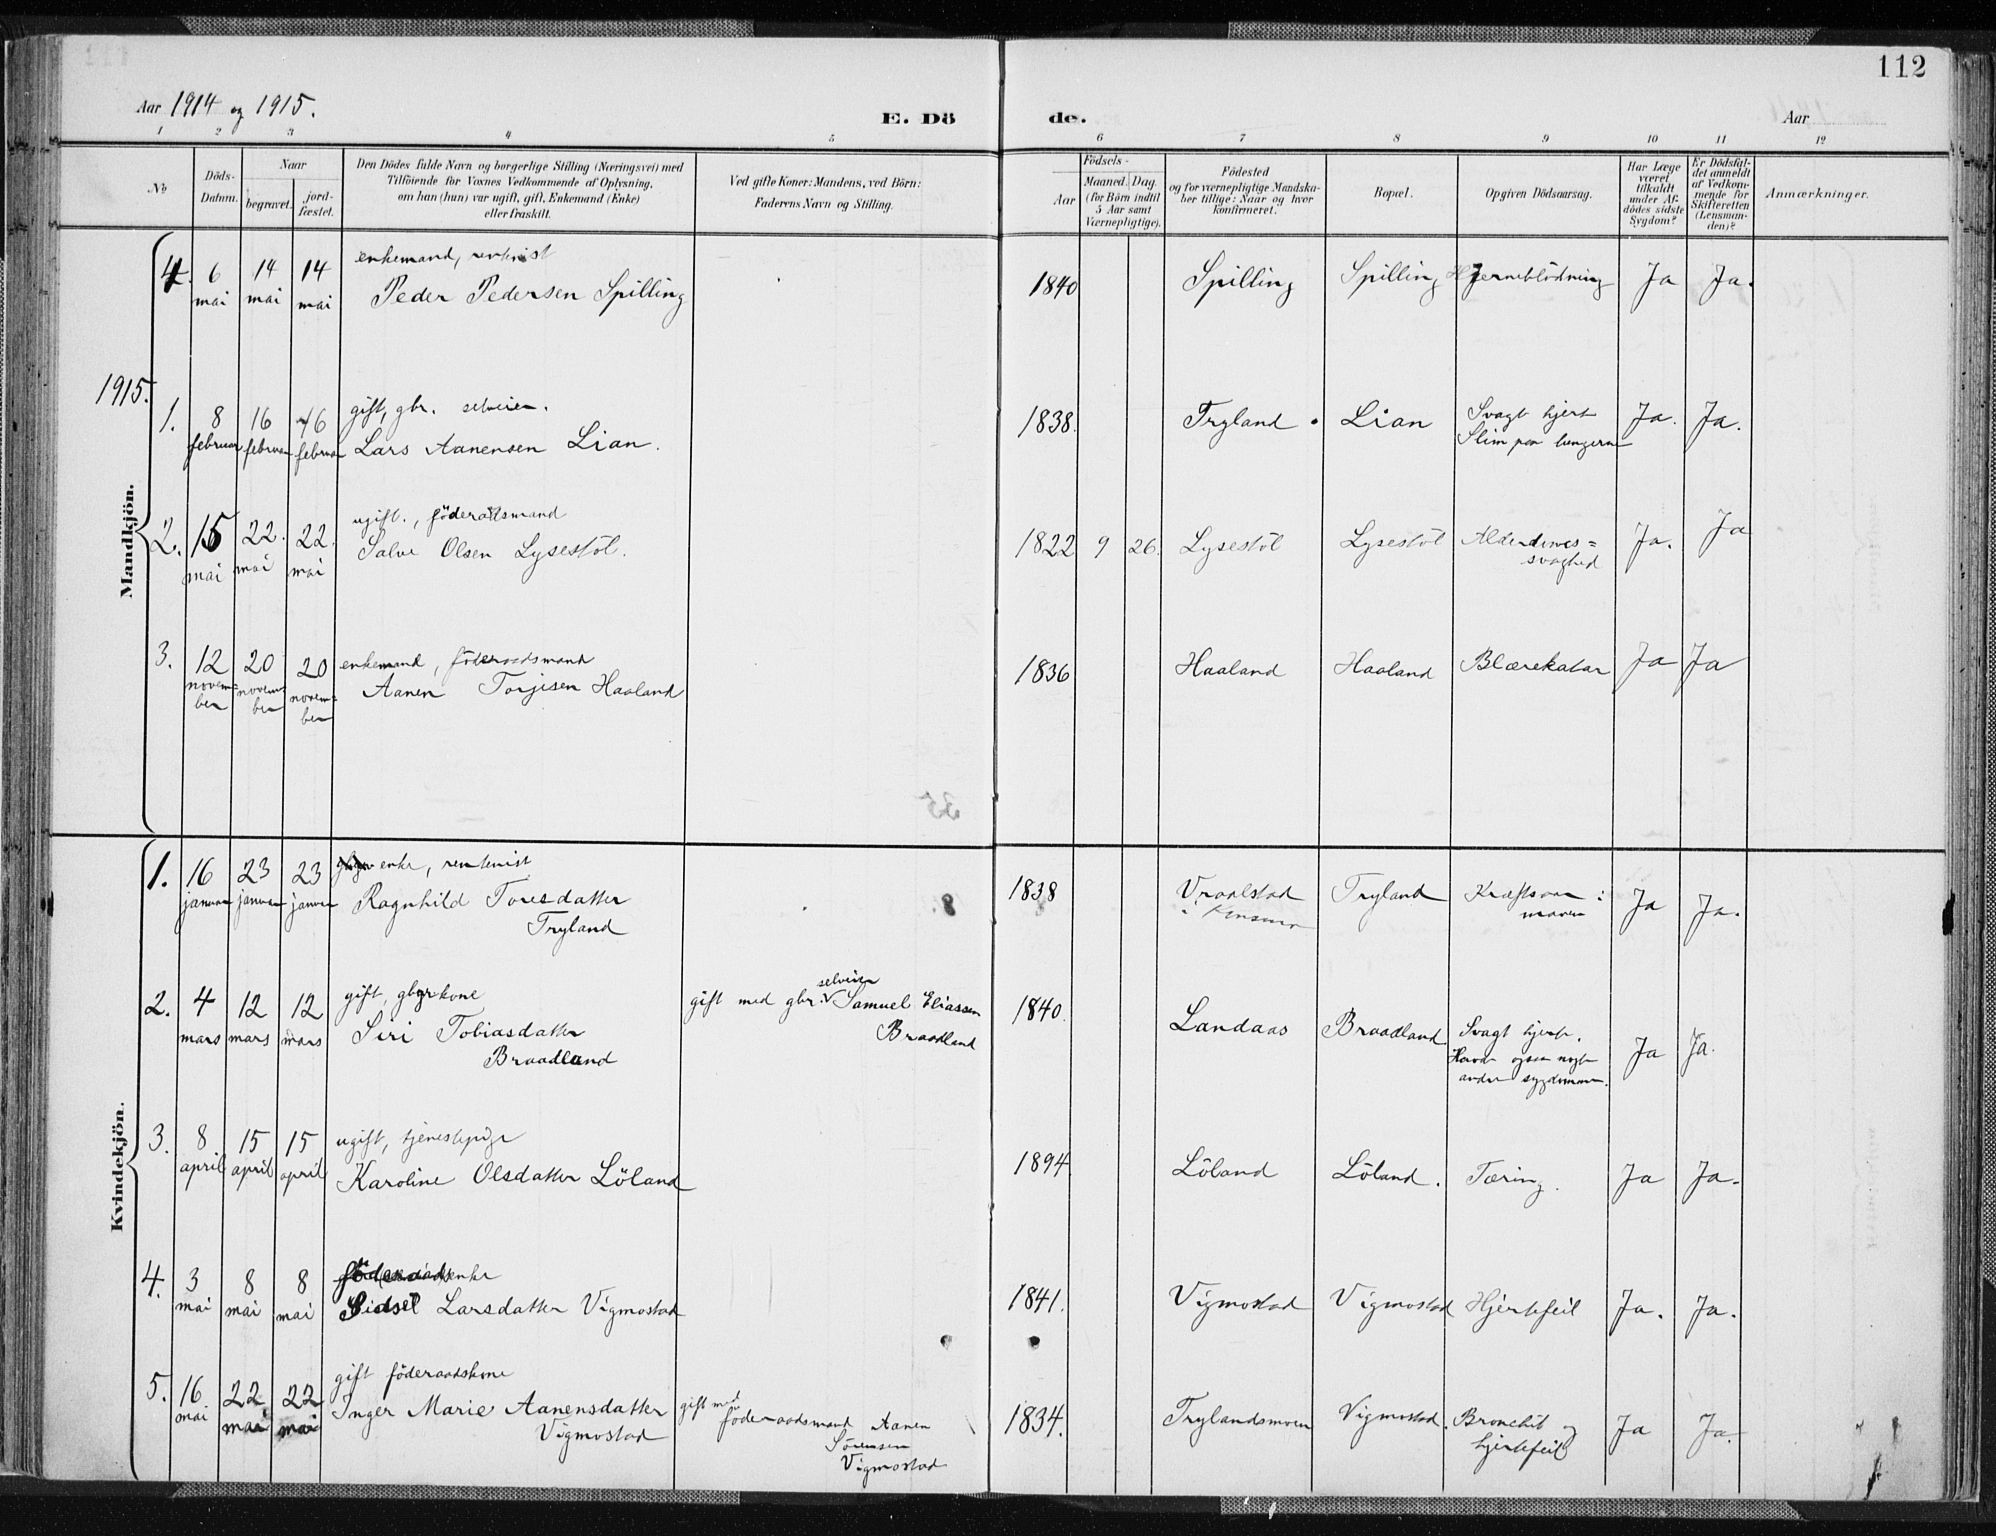 112
Aar 1914 og 1915.
E. Dö
de.
Aar
1 2 3 4 5 6 7 8 9 10 11 12
No
Döds-
Datum.
Naar
begravet.
jord-
fæstet.
Den Dödes fulde Navn og borgerlige Stilling (Næringsvei) med
Tilföiende for Voxnes Vedkommende af Oplysning,
om han (hun) var ugift, gift, Enkemand (Enke)
eller fraskilt.
Ved gifte Koner: Mandens, ved Börn:
Faderens Navn og Stilling.
Födsels-
Aar
Maaned. Dag.
(for Börn indtil
5 Aar samt
Værnepligtige).
Födested
og for værnepligtige Mandska-
ber tillige: Naar og hvor
konfirmeret.
Bopæl.
Opgiven Dödsaarsag.
Har Læge
været
tilkaldt
under Af-
dödes sidste
Sygdom?
Er Dödsfal-
det anmeldt
af Vedkom-
mende for
Skifteretten
(Lensman-
den)?
Anmærkninger.
Mandkjön.
4. 6 mai 14 mai 14 mai
enkemand, rentenist
Peder Pedersen Spilling
1840 Spilling Spilling Hjerneblödning Ja Ja.
1915.
1. 8 februar 16 februar 16 februar
gift, gbr. selveier.
Lars Aanensen Lian.
1838. Tryland Lian
Svagt hjerte
Slim paa lungerne
Ja. Ja.
2. 15 mai 22. mai 22. mai
ugift., föderaadsmand
Salve Olsen Lysestöl.
1822 9 26. Lysestöl Lysestöl
Alderdoms=
svaghed
Ja. Ja
3. 12 novem=
ber 20 novem=
ber 20 novem=
ber
enkemand, föderaadsmand
Aanen Torjisen Haaland
1836 Haaland Haaland Blærekatar Ja Ja
Kvindekjön.
1. 16 januar 23 januar 23 januar
enke, rentenist
Ragnhild Toresdatter
Tryland
1838 Vraalstad
i
Tryland
Kræftsaar i
maven
Ja Ja.
2. 4 mars 12 mars 12 mars
gift, gbrkone
Siri Tobiasdatter
Braadland
selveier
gift med gbr. Samuel Eliassen
Braadland
1840. Landaas Braadland
Svagt hjerte.
Havde ogsaa nogle
andre sygdomme.
Ja Ja.
3. 8 april 15 april 15 april
ugift, tjenestepige
Karoline Olsdatter Löland
1894. Löland Löland. Tæring. Ja Ja.
4. 3 mai 8 mai 8 mai
föderaadsenke
Sidsel Larsdatter Vigmostad
1841. Vigmostad Vigmostad Hjertefeil Ja. Ja.
5. 16 mai 22 mai 22 mai
gift föderaadskone
Inger Marie Aanensdatter
Vigmostad
gift med
föderaadsmand Aanen
Sörensen
Vigmostad
1834. Trylandsmoen Vigmostad.
Bronchit og
hjertefeil
Ja Ja.